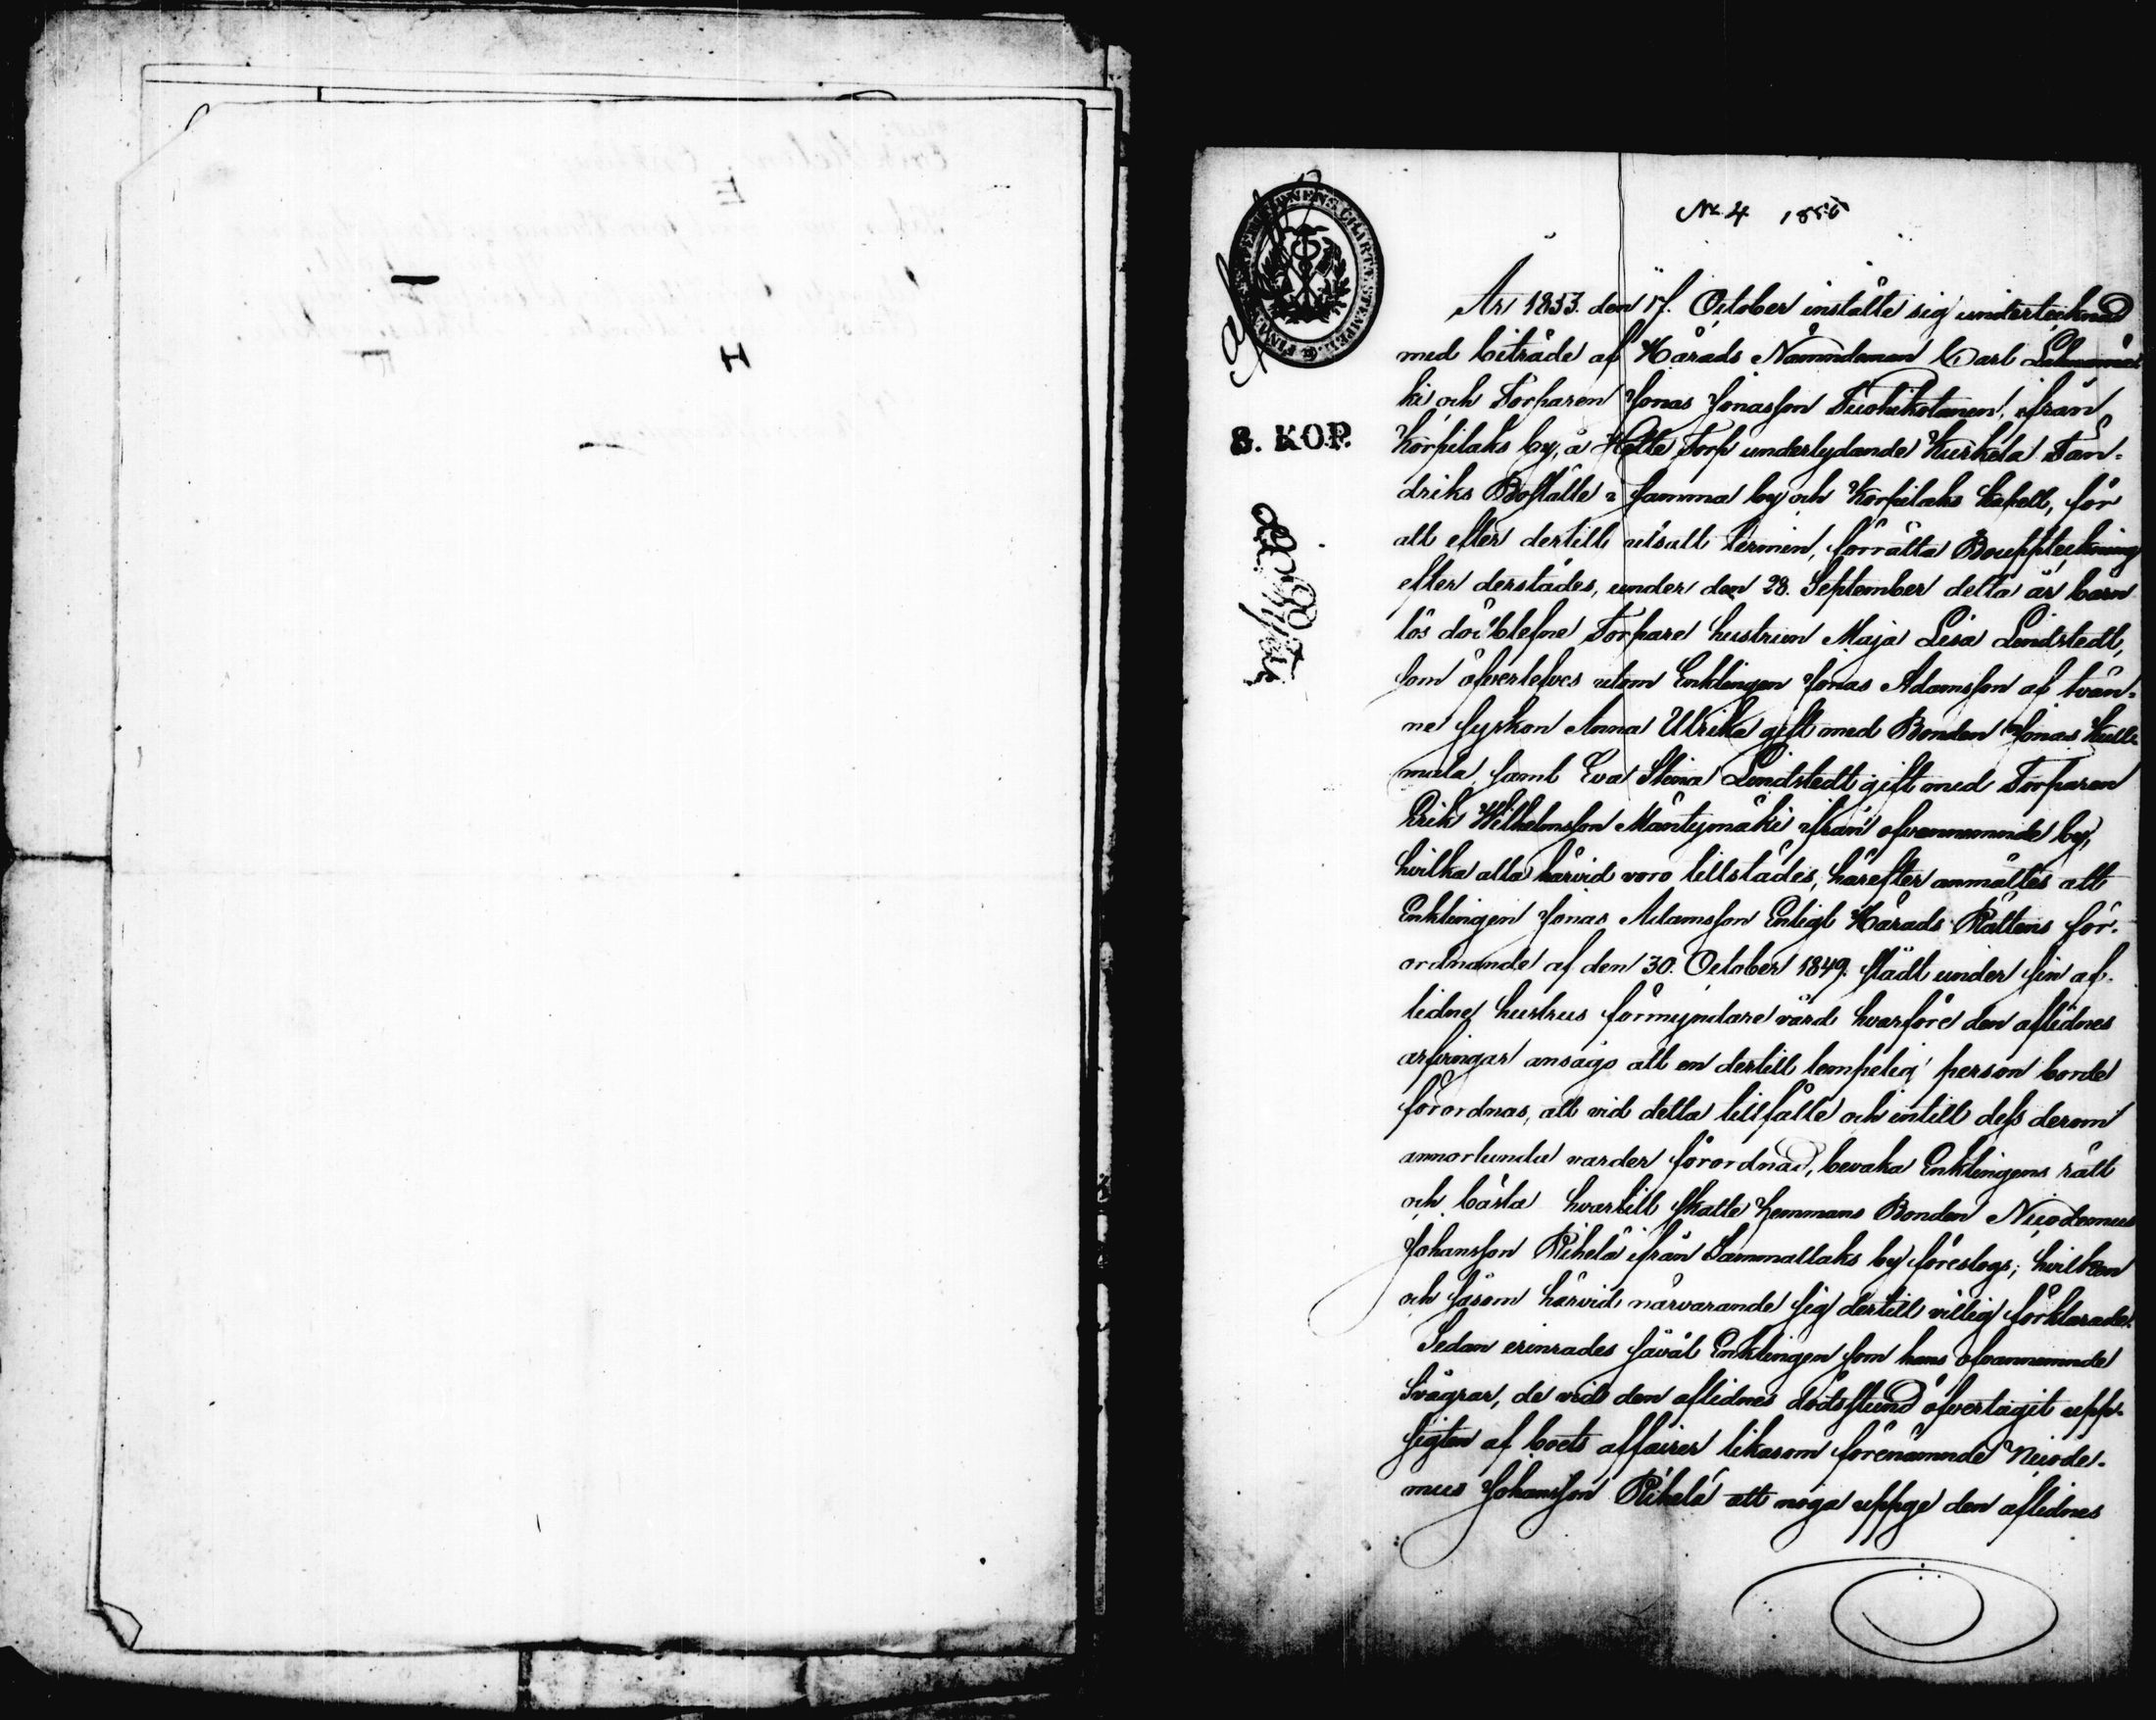 No 4 1856
År 1853. den 17. October instälte sig undertecknad
med biträde af Härads Nämndeman Carl
ki och Torparen Jonas Jonasson Tuohikotanen, ifrån
Korpilaks by, å Holte Torp underlydande Kurkela Fän-
driks Boställe i samma by och Korpilaks Kapell, för
att efter dertill utsatt termin, förrätta Bouppteckning
efter derstädes, under den 28. September detta år barn
lös död blefne Torpare hustrun Maja Lisa Lindstedt,
som öfverlefves utom Enklingen Jonas Adamsson af tvän-
ne syskon Anna Ulrika gift med Bonden Jonas Kull-
mala, samt Eva Stina Lindstedt gift med Torparen
Erik Wilhelmsson Mäntymäki ifrån ofvannemnde by,
hvilka alla härvid voro tillstädes, härefter anmältes att
Enklingen Jonas Adamsson Enligt Härads Rättens för-
ordnande af den 30. October 1849. städt under sin af-
lidne hustrus förmyndare vård hvarföre den aflidnes
arfvingar ansågo att en dertill lempelig person borde
förordnas, att vid detta tillfälle och intill dess derom
annorlunda varder förordnad, bevaka Enklingens rätt
och bästa hvartill skatte hemmans Bonden Nicodemus
Johansson Rihelä ifrån Sammallaks by föreslogs; hvilken
och såsom härvid närvarande sig dertill villig förklarade.
Sedan erinrades såväl Enklingen som hans ofvannemnde
Svägrar, de vid den aflidnes dödsstund öfvertagit upp-
sigten af boets affairer likasom förenämnde Nicode-
mus Johansson Rihelä att noga uppge den aflidnes
CHARTÆ STEMPEL
8. KOP.